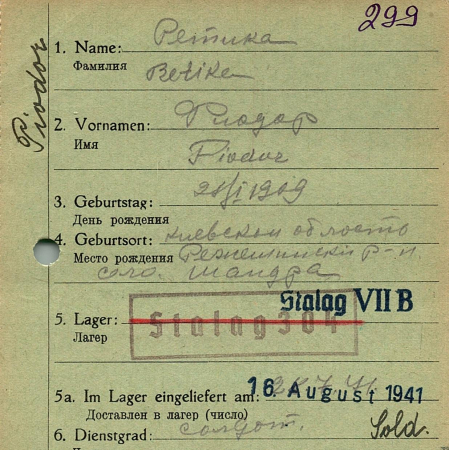 299
Piodor
1. Name: Ретика
Фамилия Retika
2. Vornamen: Фиодор
Имя Fiodor
3. Geburtstag: 28/I 1909
День рождения
4. Geburtsort: киевской область
Место рождения р-н
село. Шандра
Stalag VII B
5. Lager: Stalag 304
Лагер
5a. Im Lager eingeliefert am: 16. August 1941
Доставлен в лагер (число)
6. Dienstgrad: солдат. Sold.